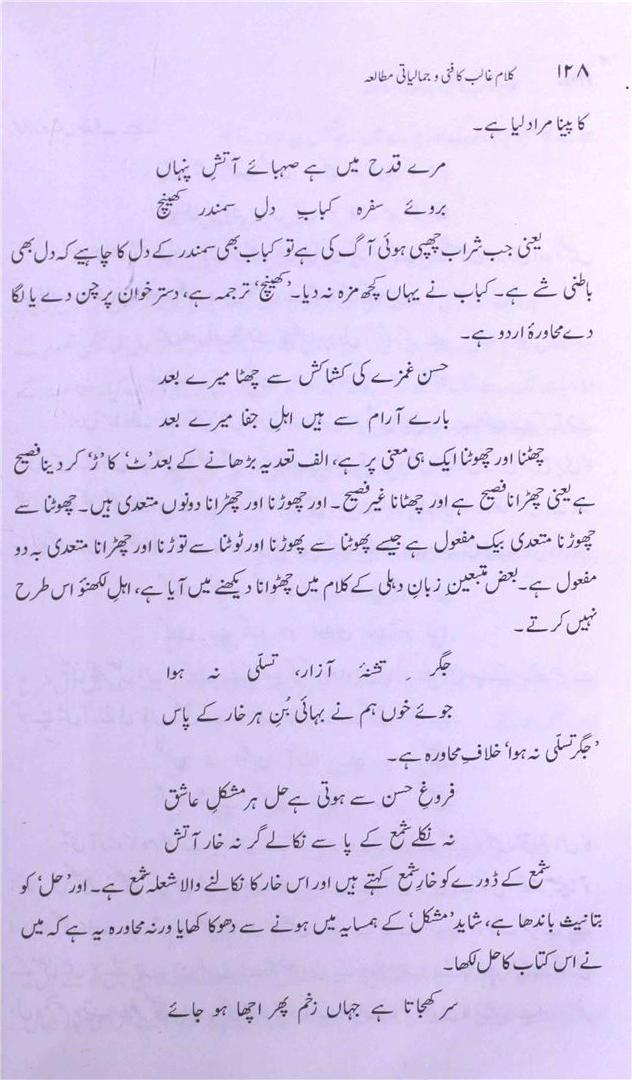 ۱۲۸ کلام غالب کا فنی و جمالیاتی مطالعہ
کا پینا مراد لیا ہے۔
مرے قدح میں ہے صہبائے آتشِ پنہاں
بروئے سفرہ کبابِ دلِ سمندر کھینچ
یعنی جب شراب چھپی ہوئی آگ کی ہے تو کباب بھی سمندر کے دل کا چاہیے کہ دل بھی
باطنی شے ہے۔ کباب نے یہاں کچھ مزہ نہ دیا۔ ’کھینچ‘ ترجمہ ہے، دسترخوان پر چن دے یا لگا
دے محاورۂ اردو ہے۔
حسن غمزے کی کشاکش سے چھٹا میرے بعد
بارے آرام سے ہیں اہلِ جفا میرے بعد
چھٹنا اور چھوٹنا ایک ہی معنی پر ہے، الف تعدیہ بڑھانے کے بعد ’ٹ‘ کا ’ڑ‘ کر دینا فصیح
ہے یعنی چھڑانا فصیح ہے اور چھٹانا غیر فصیح۔ اور چھوڑنا اور چھڑانا دونوں متعدی ہیں۔ چھوٹنا سے
چھوڑنا متعدی بیک مفعول ہے جیسے پھوٹنا سے پھوڑنا اور ٹوٹنا سے توڑنا اور چھڑانا متعدی بہ دو
مفعول ہے۔ بعض متبعینِ زبانِ دہلی کے کلام میں چھٹوانا دیکھنے میں آیا ہے، اہلِ لکھنؤ اس طرح
نہیں کرتے۔
جگر تشنۂ آزار، تسلّی نہ ہوا
جوئے خوں ہم نے بہائی بُنِ ہر خار کے پاس
’جگر تسلّی نہ ہوا‘ خلافِ محاورہ ہے۔
فروغِ حسن سے ہوتی ہے حل ہر مشکلِ عاشق
نہ نکلے شمع کے پا سے نکالے گر نہ خار آتش
شمع کے ڈورے کو خارِ شمع کہتے ہیں اور اس خار کا نکالنے والا شعلہ شمع ہے۔ اور ’حل‘ کو
بتانیث باندھا ہے، شاید ’مشکل‘ کے ہمسایہ میں ہونے سے دھوکا کھایا ورنہ محاورہ یہ ہے کہ میں
نے اس کتاب کا حل لکھا۔
سر کھجاتا ہے جہاں زخم پھر اچھا ہو جائے